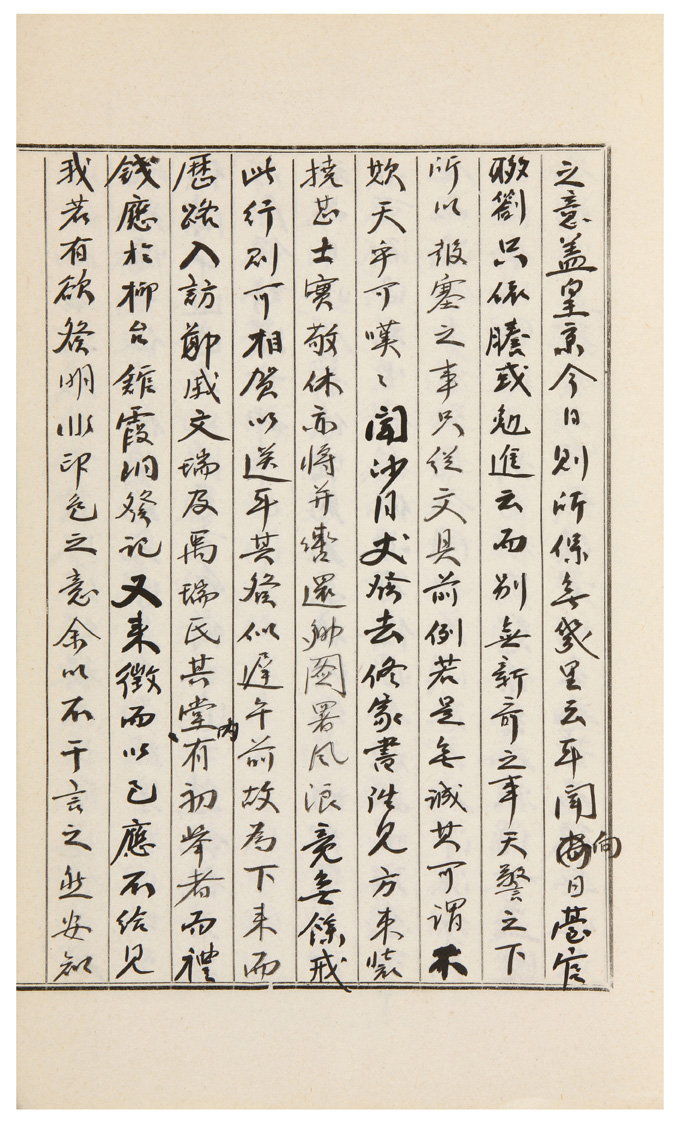 之意盖皇京今日則所保無幾里云耳聞向日臺官
聯劄只依賸或勉進云而別無新奇之事天警之下
所以報塞之事只從文具前例若是無誠其可謂不
欺天乎可嘆々聞沙月丈發去修家書往見方束裝
撓甚士實敬休亦將并轡還鄉園署風浪竟無餘戒
此行則可相賀以送耳其發似遲午前故為下來而
歷路入訪鄭戚文瑞及禹瑞氏其堂內有初擧者而禮
錢應於柳台館霞洞發記又來徵而以已應不給見
我若有欲發明此印色之意余以不干言之然安知